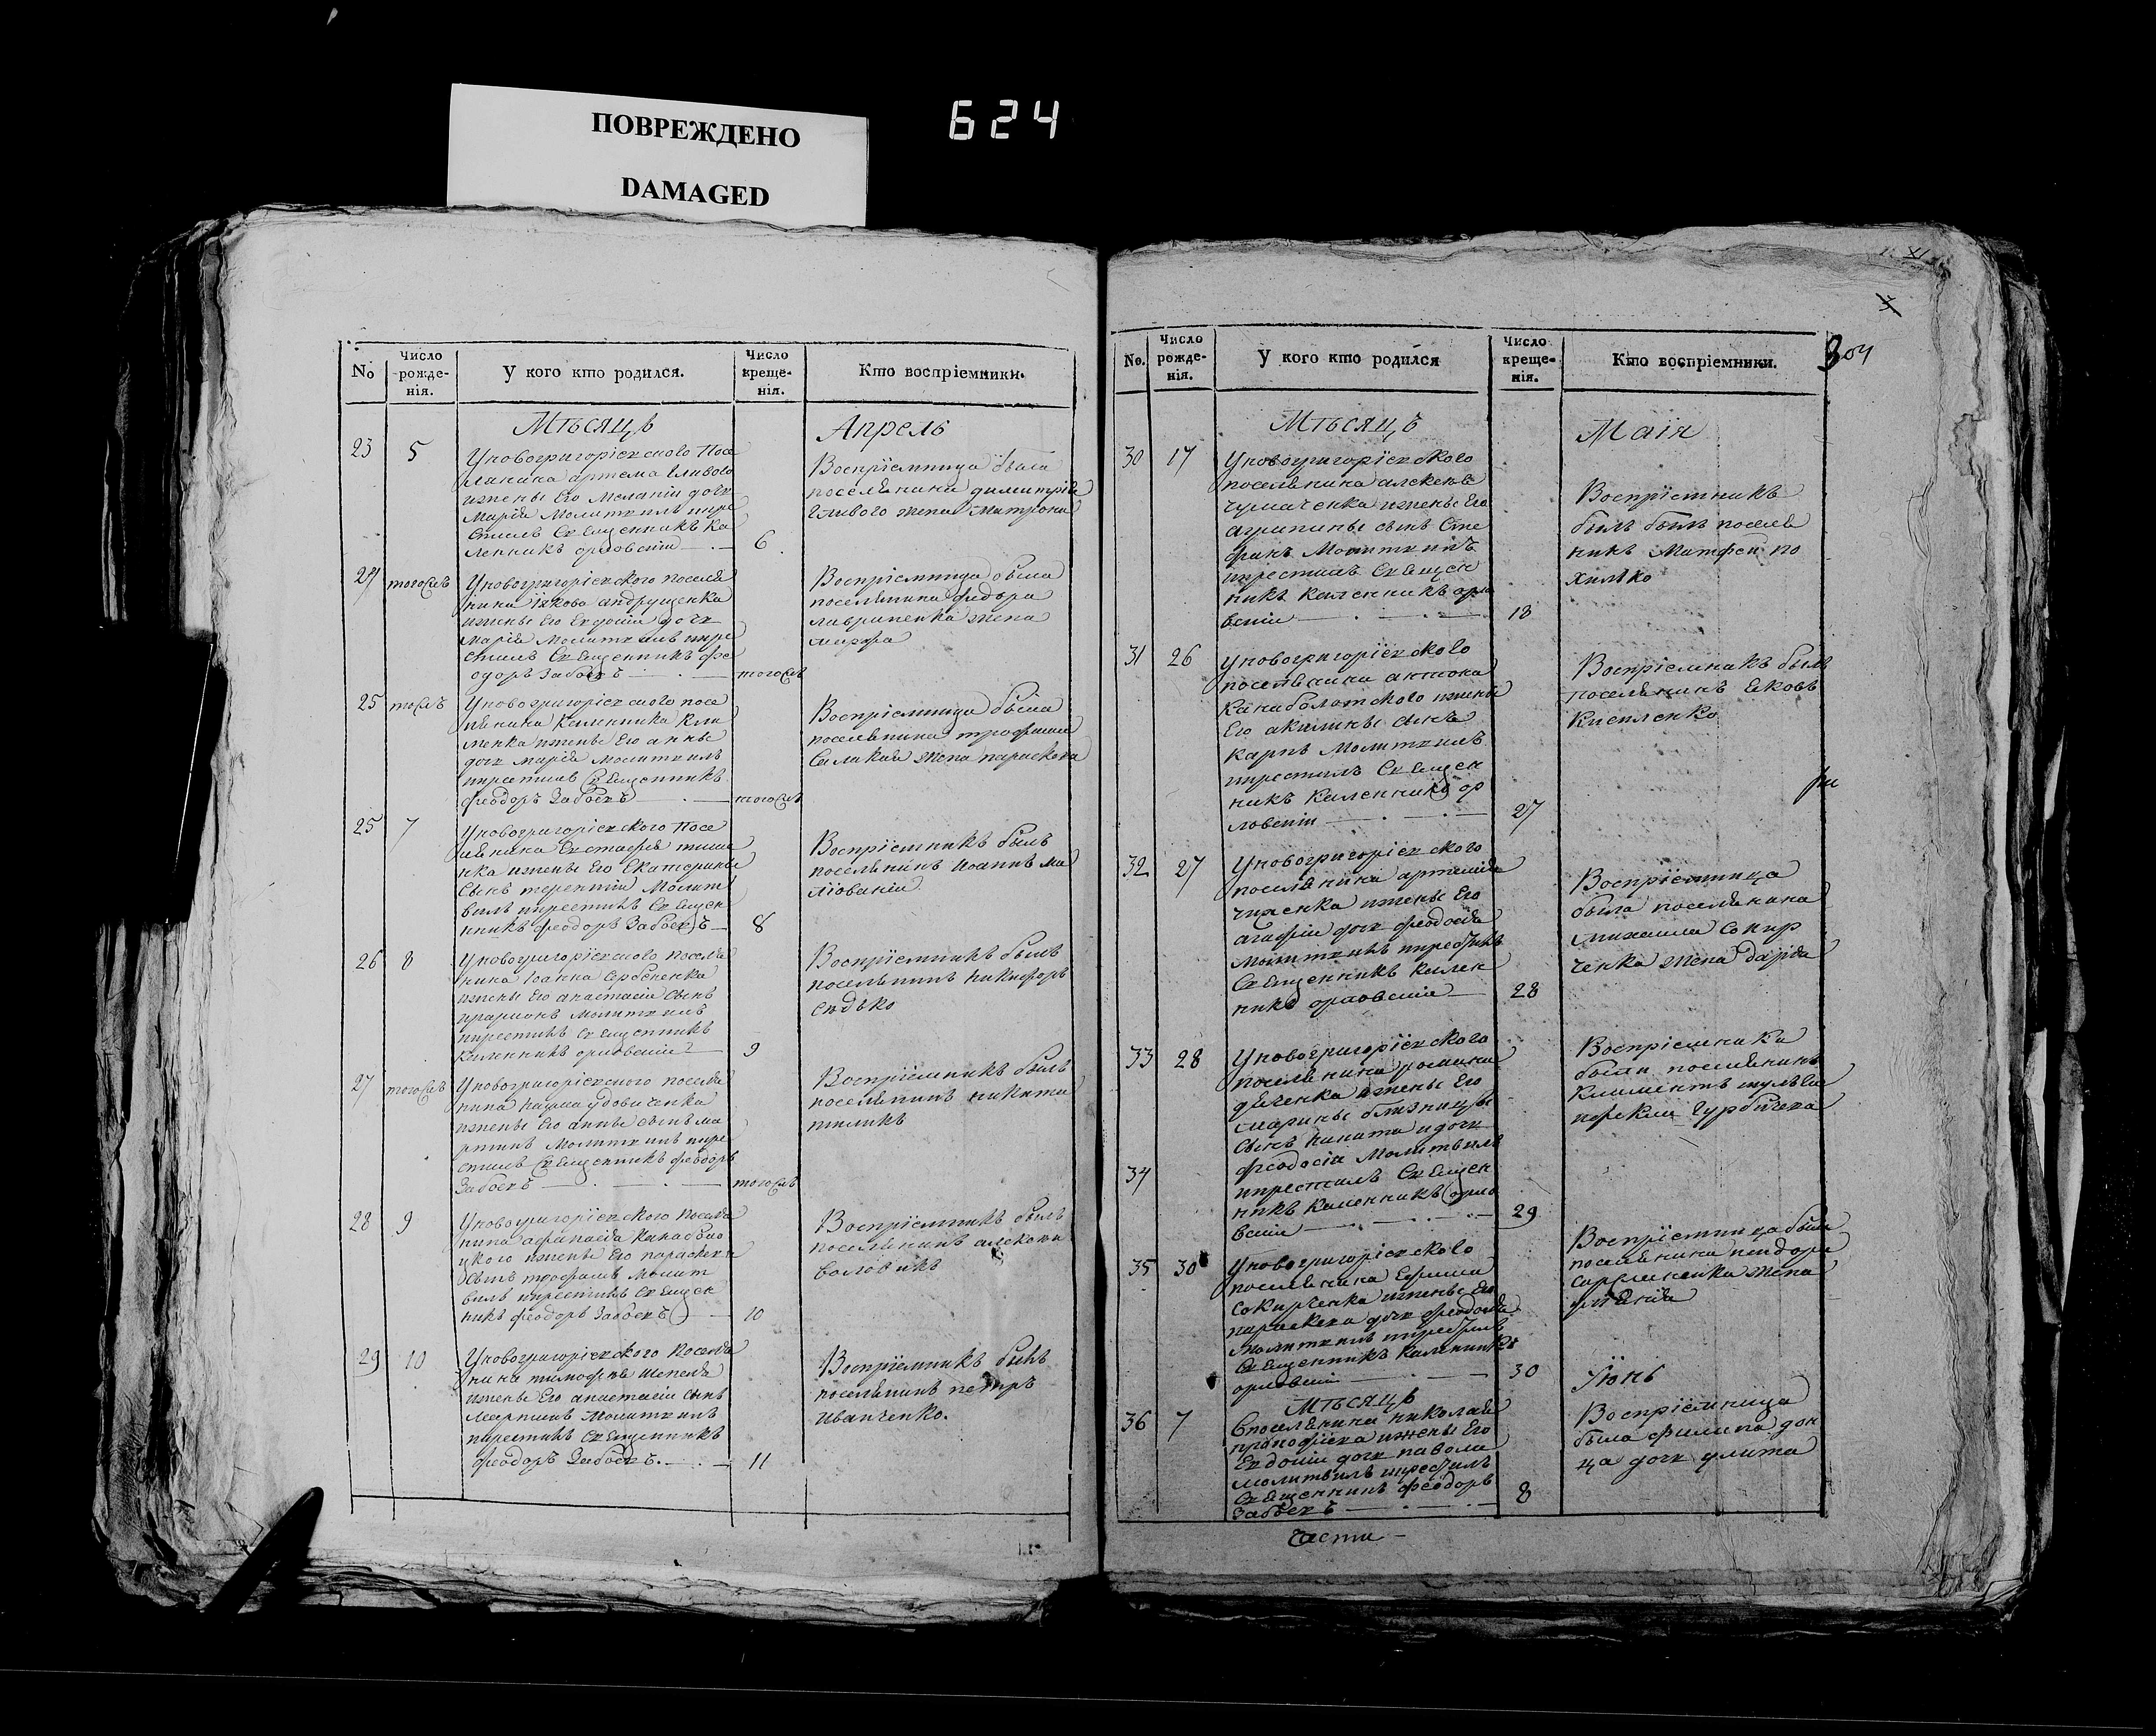 ПОВРЕЖДЕНО
DAMAGED
624
No
Число рожде- нія.
У кого кто родился.
Число креще- нія.
Кто воспріемники.
Мѣсяцъ Апрель
23 5 Уновогригоріевского Посе
лянина артема Сливого
ижены Его Меланіи дочь
Марія Молитвилъ икре
стилъ Священникъ Ка
ленникъ орловскій 6
Воспріемница была
поселянина димитрія
Сливого жена Матрона
24 тогожъ Уновогригоріевского поселя
нина Іякова андрущенка
ижены Его Евдокіи дочь
марія Молитвилъ икре
стилъ Священникъ фе
одоръ Забоевъ тогожъ
Воспріемница была
поселянина федора
лавриненка жена
марфа
25 тожъ Уновогригоріевского посе
лянина Каленника Кли
менка ижены Его анны
дочь марія молитвилъ
икрестилъ Священникъ
феодоръ Забоевъ тогожъ
Воспріемница была
поселянина трофима
жена параскева
25 7 Уновогригоріевского Посе
лянина Евстафія
нка ижены Его Екатерины
Сынъ терентій Молит
вилъ икрестилъ Священ
никъ феодоръ Забоевъ 8
Воспріемникъ былъ
поселянинъ Иоаннъ
26 8 Уновогригоріевского поселя
нина Іоанна Сербененка
ижены Его анастасіи Сынъ
иларионъ Молитвилъ
икрестилъ Священникъ
Каленникъ орловскій 9
Воспріемникъ былъ
поселянинъ никифоръ
27 тогожъ Уновогригоріевского поселя
нина наума удовиченка
ижены Его анны сынъ ма
ртинъ Молитвилъ икре
стилъ Священникъ феодоръ
Забоевъ тогожъ
Воспріемникъ былъ
поселянинъ никита
28 9 Уновогригоріевского поселя
нина афанасія Канабло
цкого ижены Его параскевы
Сынъ трофимъ Молит
вилъ икрестилъ Священ
никъ феодоръ Забоевъ 10
Воспріемникъ былъ
поселянинъ алексей
Воловикъ
29 10 Уновогригоріевского Поселя
нина тимофея Шепеля
ижены Его анастасіи сынъ
мартинъ Молитвилъ
икрестилъ Священникъ
феодоръ Забоевъ. 11
Воспріемникъ былъ
поселянинъ петръ
иванченко.
304
No.
Число рожде- нія.
У кого кто родился
Число креще- нія.
Кто воспріемники.
Мѣсяцъ Маія
30 17 Уновогригоріевского
поселянина алексея
чумаченка ижены Его
агрипины сынъ Сте
фанъ Молитвилъ
икрестилъ Священ
никъ Каленникъ орло
вскій 18
Воспріемникъ
былъ былъ поселя
нинъ Матфей по
хилко
31 26 Уновогригоріевского
поселянина антона
Канаболотского ижены
Его акилины сынъ
Карпъ Молитвилъ
икрестилъ Священ
никъ Каленникъ ор
ловскій 27
Воспріемникъ былъ
поселянинъ Яковъ
32 27 Уновогригоріевского
поселянина
ченка ижены Его
агафіи дочь феодосія
молитвилъ икрестилъ
Священникъ Кален
никъ орловскій 28
Воспріемница
была поселянина
михаила Сокир
ченка жена дарія
33 28 Уновогригоріевского
поселянина романа
дяченка ижены Его
марины близнецы
34 сынъ никита идочь
феодосія Молитвилъ
икрестилъ Священ
никъ Каленникъ орло
вскій 29
Воспріемники
были поселянинъ
Климентъ
35 30 Уновогригоріевского
поселянина Ефима
Сокирченка ижены Его
параскева дочь феодосія
Молитвилъ икрестилъ
Священникъ Каленникъ
орловскій 30
Воспріемница была
поселянина
жена
Мѣсяцъ Іюнь
36 7 Споселянина николая
прокофіева ижены Его
Евдокіи дочь павола
молитвилъ икрестилъ
Священникъ феодоръ
Забоевъ 8
Воспріемница
была филипа дон
ца дочь улита
Части